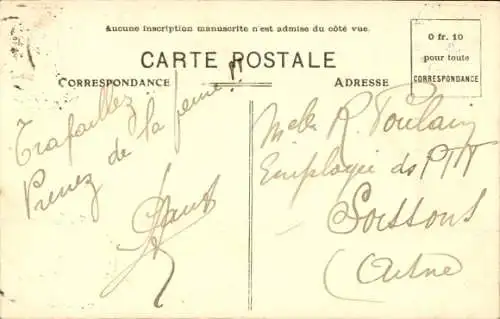 Aucune inscription manuscrite n'est admise du côté vue.
CARTE POSTALE
CORRESPONDANCE
ADRESSE
0 fr. 10
pour toute
CORRESPONDANCE
Trafaillez
Prenez de la peine !!
Melle R. Poulain
Employée des PTT
Soissons
(Aisne)